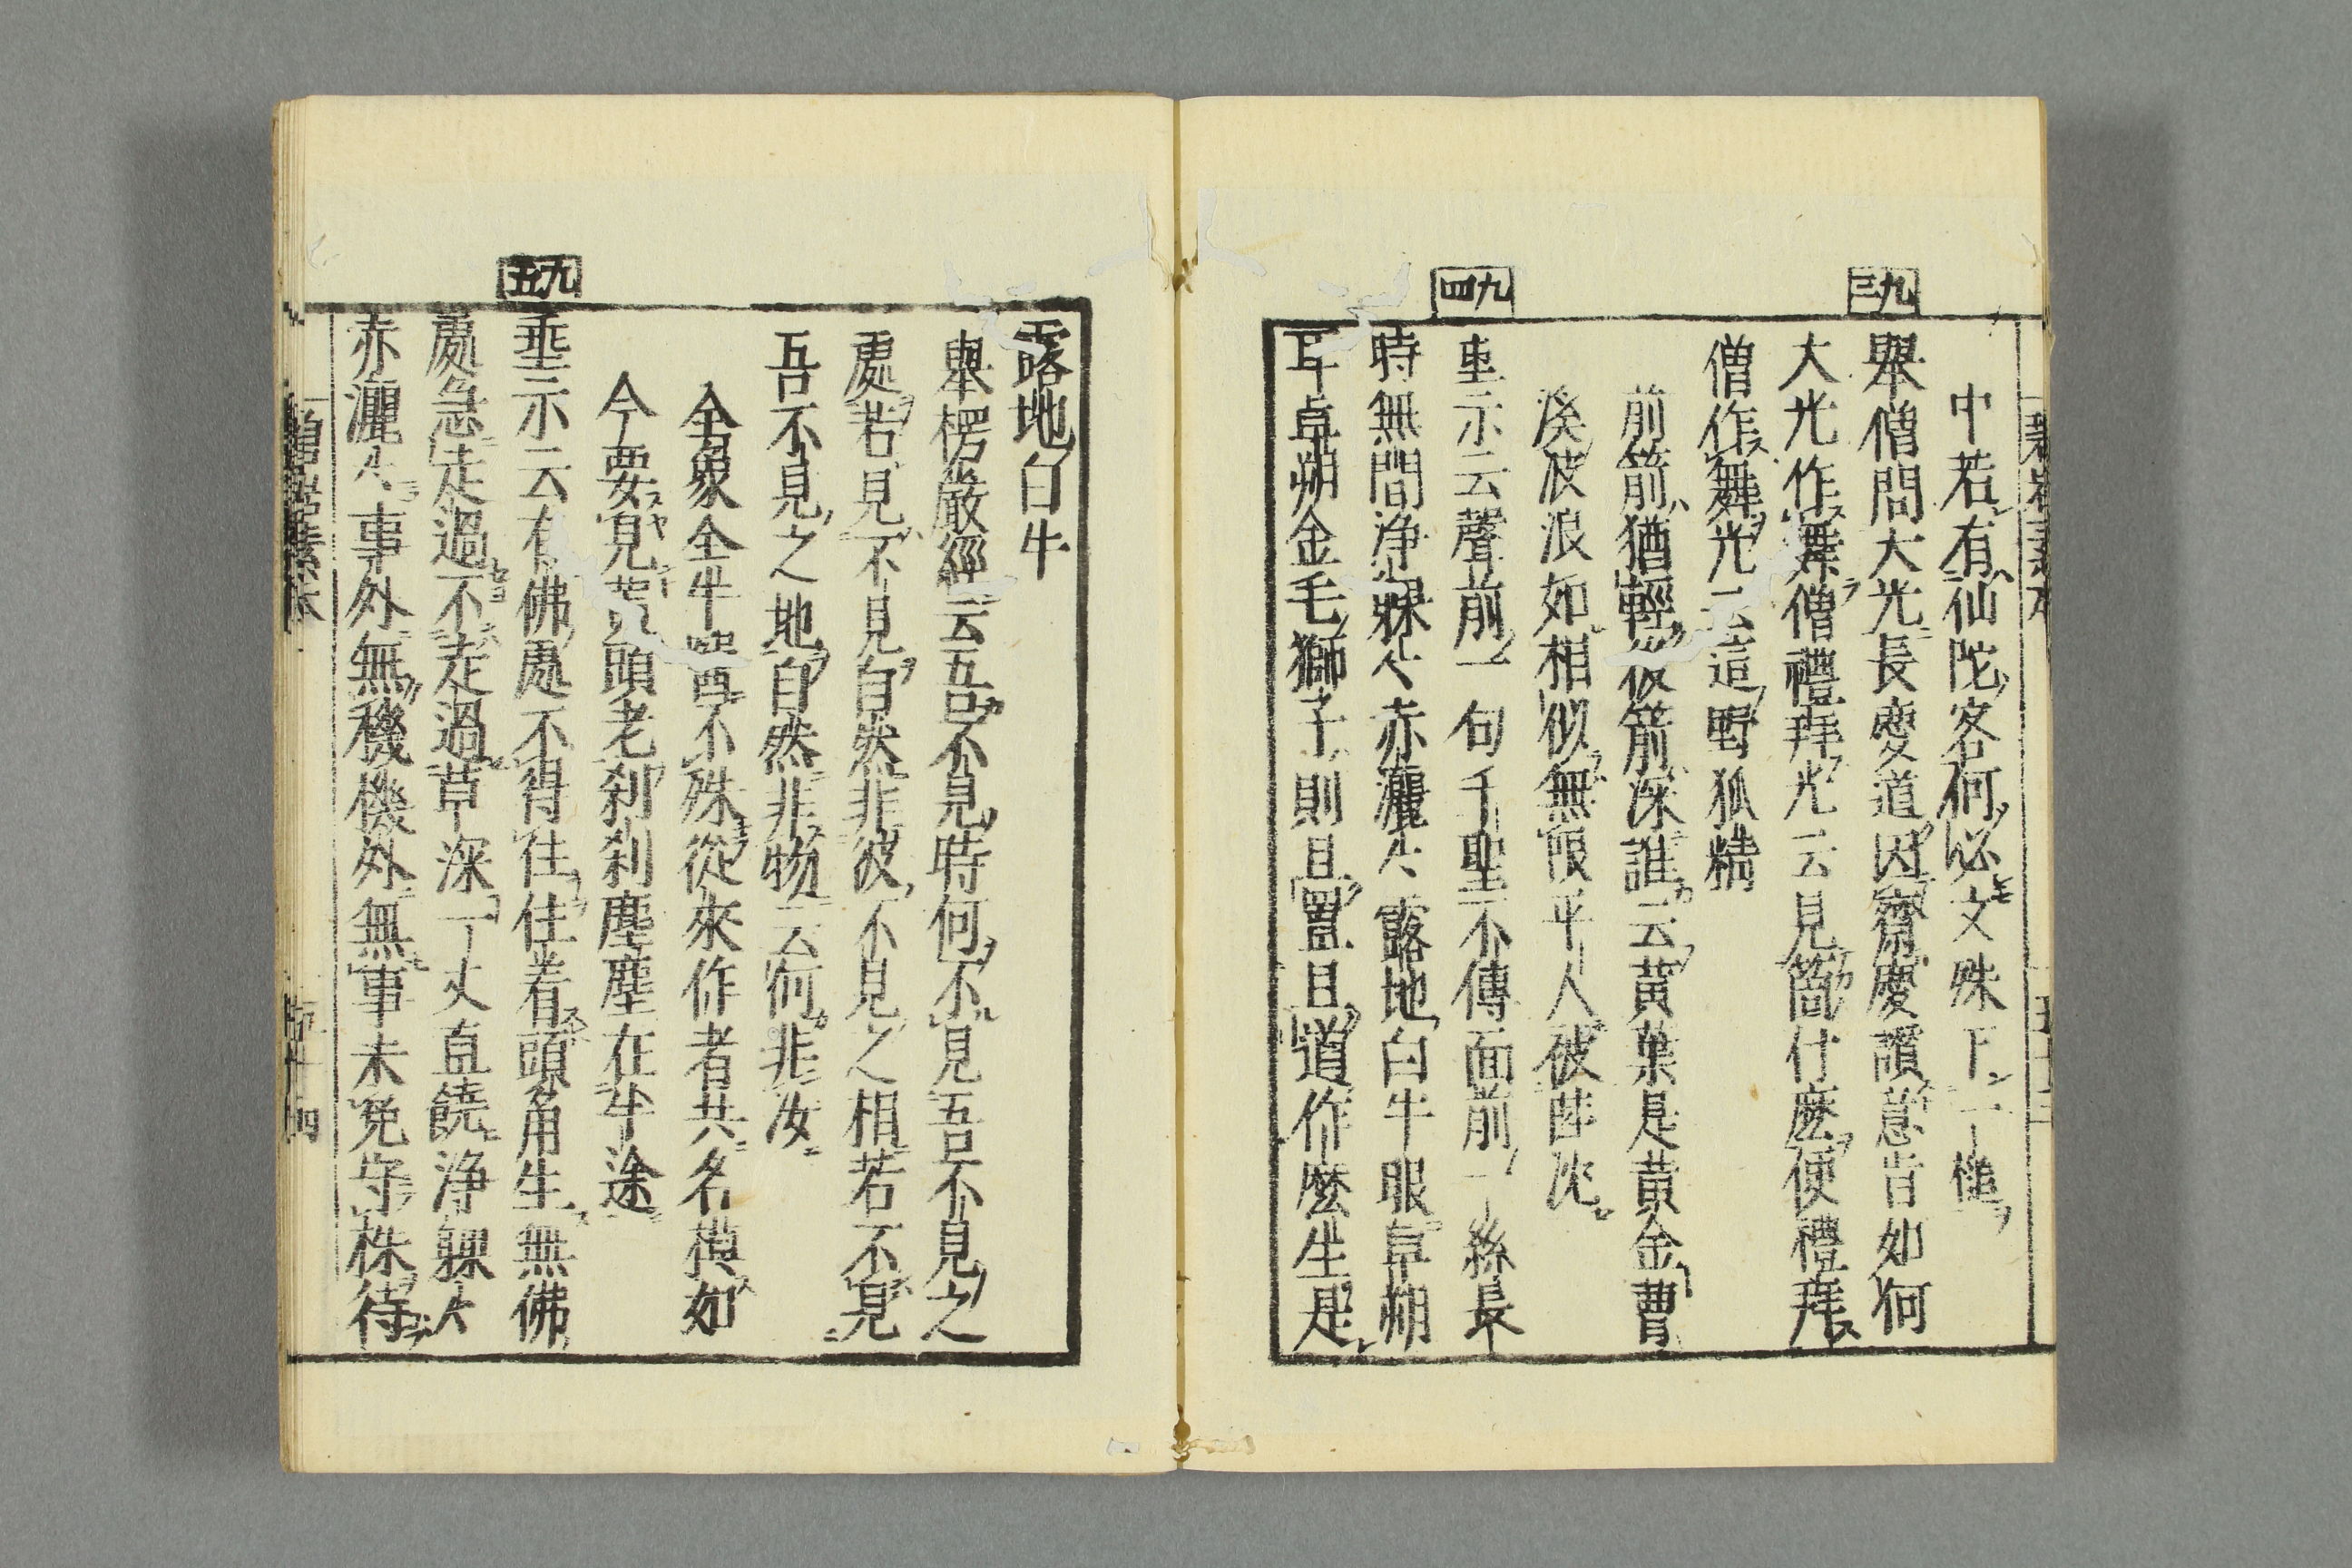 中若有仙陀客何必文殊下一槌
九三
擧僧問大光長慶道因齋慶讚意旨如何
大光作舞僧禮拜光云見箇什麽便禮拜
僧作舞光云這野狐精
前箭猶輕後箭深誰云黃葉是黃金曹
溪波浪如相似無限平人被陸沈
九四
垂示云聲前一句千聖不傳面前一絲長
時無間淨躶〻赤灑〻露地白牛眼卓朔
耳卓朔金毛獅子則且置且道作麽生是
露地白牛
擧楞嚴經云吾不見時何不見吾不見之
處若見不見自然非彼不見之相若不見
吾不見之地自然非物云何非汝
全象全牛瞖不殊從來作者共名模如
今要見黃頭老刹刹塵塵在半途
九五
垂示云有佛處不得住住著頭角生無佛
處急走過不走過草深一丈直饒淨躶〻
赤灑〻事外無機機外無事未免守株待